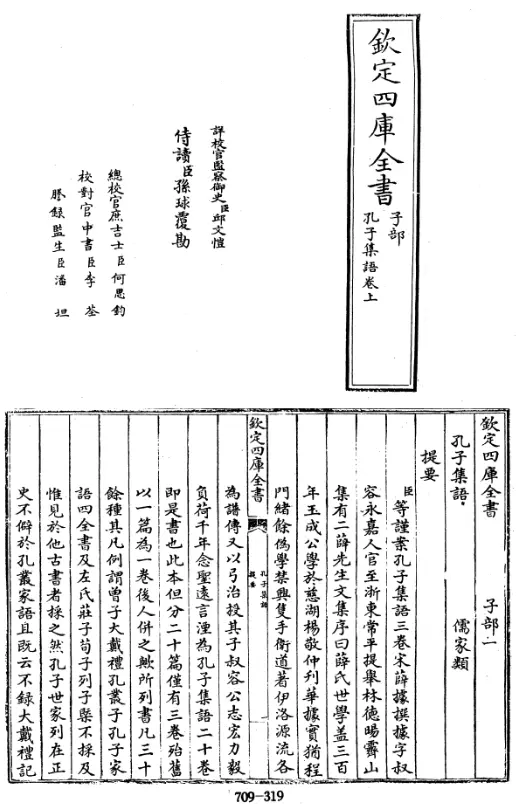 欽定四庫全書
子部
孔子集語卷上
詳校官監察御史臣邱文愷
侍讀臣孫球覆勘
總校官庶吉士臣何思鈞
校對官中書臣李荃
謄錄監生臣潘坦
欽定四庫全書 子部一
孔子集語 儒家類
提要
臣等謹案孔子集語三卷宋薛據撰據字叔
容永嘉人官至浙東常平提舉林德暘霽山
集有二薛先生文集序曰薛氏世學蓋三百
年玉成公學於慈湖楊敬仲刋華據實猶程
門緒餘偽學禁興隻手衛道著伊洛源流各
欽定四庫全書
孔子集語
提要
為譜傳又以弓治授其子叔容公志宏力毅
負荷千年念聖遠言湮為孔子集語二十卷
即是書也此本但分二十篇僅有三卷殆舊
以一篇為一卷後人併之歟所列書凡三十
餘種其凡例謂曾子大戴禮孔叢子孔子家
語四全書及左氏莊子荀子列子槩不採及
惟見於他古書者採之然孔子世家列在正
史不僻於孔叢家語且既云不録大戴禮記
709-319